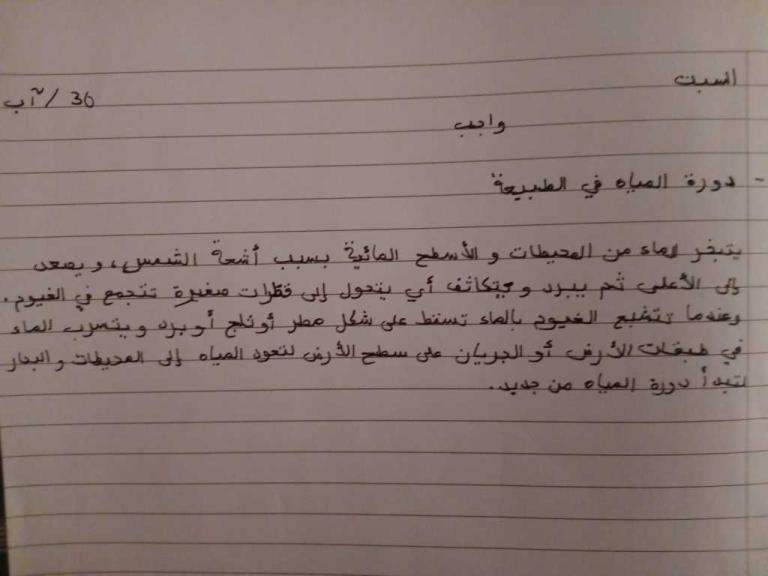 السبت
30 / آب
واجب
- دورة المياه في الطبيعة
يتبخر الماء من المحيطات و الأسطح المائية بسبب أشعة الشمس، و يصعد
إلى الأعلى ثم يبرد و يتكاثف أي يتحول إلى قطرات صغيرة تتجمع في الغيوم.
وعندما تتشبع الغيوم بالماء تسقط على شكل مطر أو ثلج أو برد و يتسرب الماء
في طبقات الأرض أو الجريان على سطح الأرض لتعود المياه إلى المحيطات و البحار
لتبدأ دورة المياه من جديد.